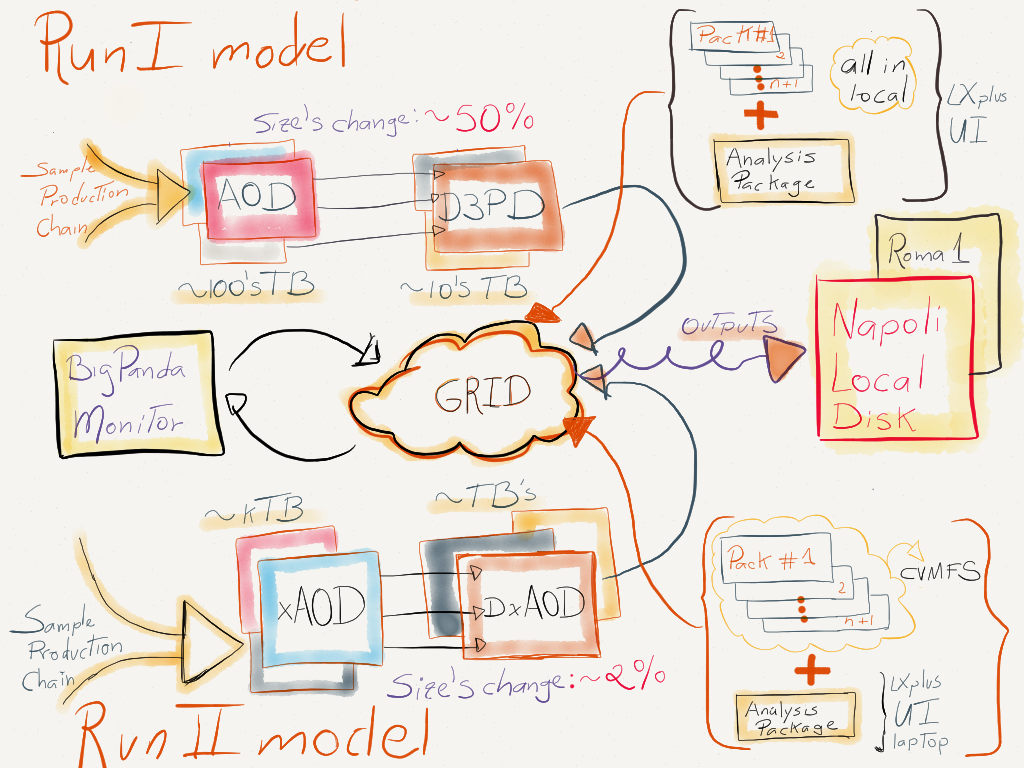 Run I model
Size's change: ~50%
Sample
Production
Chain
AOD
D3PD
~100'sTB
~10's TB
Pack#1
2
n+1
all in
local
+
Analysis
Package
LXplus
UI
Roma 1
Napoli
Local
Disk
OUTPUTS
BigPanda
Monitor
GRID
~kTB
~TB's
Sample
Production
Chain
xAOD
DxAOD
Size's change: ~2%
Pack #1
2
n+1
CVMFS
+
Analysis
Package
LXplus
UI
lapTop
Run II model